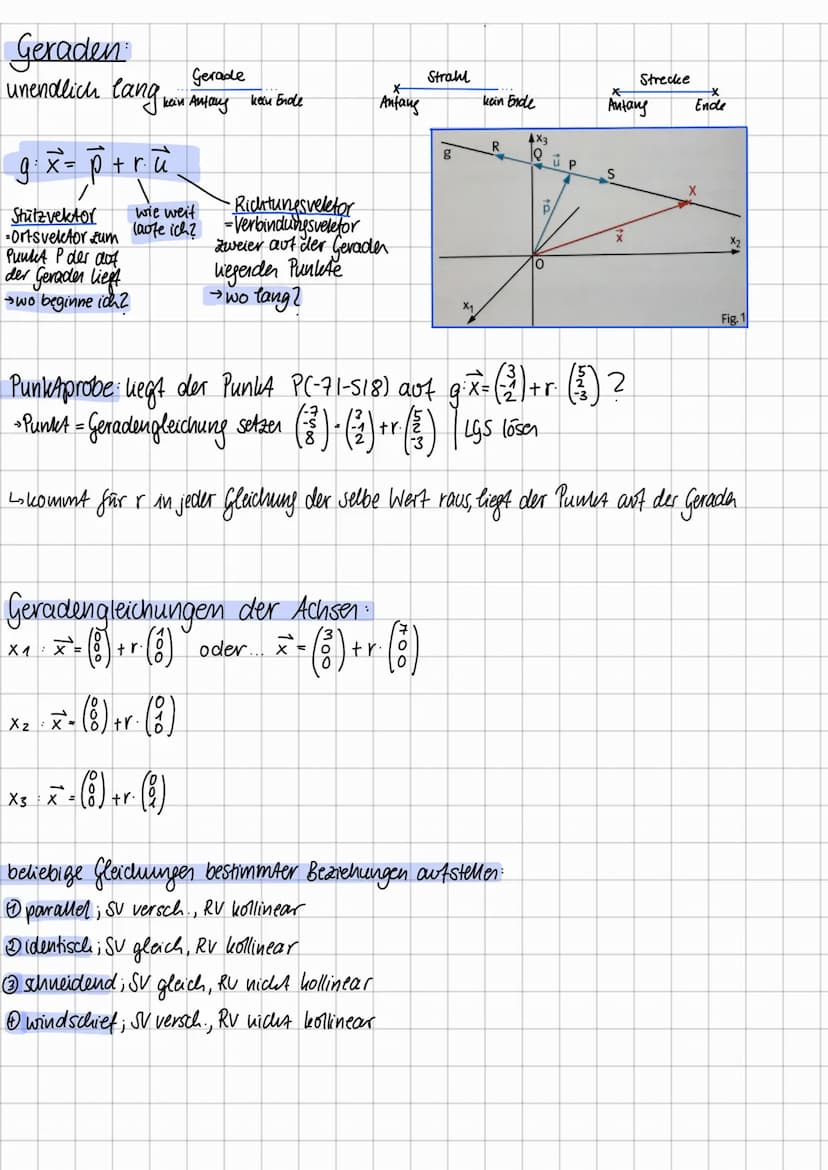 Geraden:
unendlich lang
Gerade
kein Anfang kein Ende
Strahl
Anfang kein Ende
Strecke
Anfang Ende
g: x⃗ = p⃗ + r · u⃗
Stützvektor
=Ortsvektor zum
Punkt P der auf
der Geraden liegt
→wo beginne ich?
wie weit
laufe ich?
Richtungsvektor
=Verbindungsvektor
zweier auf der Geraden
liegenden Punkte
→wo lang?
g R x₃ Q u⃗ P S X
p⃗ x⃗ x₂
O
x₁
Fig. 1
Punktprobe: liegt der Punkt P(-7|-5|8) auf g: x⃗ = (3 -1 2) + r · (5 2 -3) ?
→Punkt = Geradengleichung setzen (-7 -5 8) = (3 -1 2) + r · (5 2 -3) | LGS lösen
↳kommt für r in jeder Gleichung der selbe Wert raus, liegt der Punkt auf der Geraden
Geradengleichungen der Achsen:
x1 : x⃗ = (0 0 0) + r · (1 0 0) oder... x⃗ = (3 0 0) + r · (7 0 0)
x2 : x⃗ = (0 0 0) + r · (0 1 0)
x3 : x⃗ = (0 0 0) + r · (0 0 1)
beliebige Gleichungen bestimmter Beziehungen aufstellen:
① parallel; SV versch., RV kollinear
② identisch; SV gleich, RV kollinear
③ schneidend; SV gleich, RV nicht kollinear
④ windschief; SV versch., RV nicht kollinear